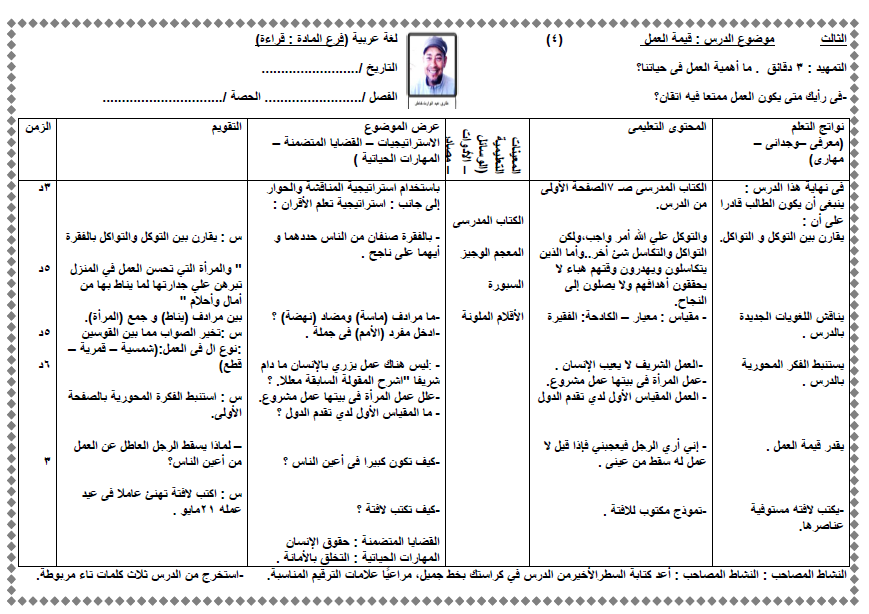 الثالث موضوع الدرس : قيمة العمل (٤) لغة عربية (فرع المادة : قراءة)
التمهيد : ٣ دقائق . ما أهمية العمل فى حياتنا؟ التاريخ /.........................
-فى رأيك متى يكون العمل ممتعا فيه اتقان؟ الفصل /......................... الحصة /...............................
نواتج التعلم
(معرفى –وجدانى –
مهارى)
المحتوى التعليمى
المعينات
التعليمية
(الوسائل
– الأدوات
– مصادر
عرض الموضوع
الاستراتيجيات – القضايا المتضمنة –
المهارات الحياتية )
التقويم
الزمن
فى نهاية هذا الدرس :
ينبغى أن يكون الطالب قادرا
على أن :
يقارن بين التوكل و التواكل.
يناقش اللغويات الجديدة
بالدرس .
يستنبط الفكر المحورية
بالدرس .
يقدر قيمة العمل .
-يكتب لافته مستوفية
عناصرها.
الكتاب المدرسى صـ ٧الصفحة الأولى
من الدرس.
والتوكل علي الله أمر واجب،ولكن
التواكل والتكاسل شئ أخر..وأما الذين
يتكاسلون ويهدرون وقتهم هباء لا
يحققون أهدافهم ولا يصلون إلى
النجاح.
- مقياس : معيار – الكادحة: الفقيرة
-العمل الشريف لا يعيب الإنسان .
-عمل المرأة فى بيتها عمل مشروع.
- العمل المقياس الأول لدي تقدم الدول
- إني أري الرجل فيعجبني فإذا قيل لا
عمل له سقط من عينى .
-نموذج مكتوب للافتة .
الكتاب المدرسى
المعجم الوجيز
السبورة
الأقلام الملونة
باستخدام استراتيجية المناقشة والحوار
إلى جانب : استراتيجية تعلم الأقران :
- بالفقرة صنفان من الناس حددهما و
أيهما على ناجح .
-ما مرادف (ماسة) ومضاد (نهضة) ؟
-ادخل مفرد (الأمم) فى جملة .
- :ليس هناك عمل يزري بالإنسان ما دام
شريفا "اشرح المقولة السابقة معللا. ؟
-علل عمل المرأة فى بيتها عمل مشروع.
- ما المقياس الأول لدي تقدم الدول ؟
-كيف تكون كبيرا فى أعين الناس ؟
-كيف تكتب لافتة ؟
القضايا المتضمنة : حقوق الإنسان
المهارات الحياتية : التخلق بالأمانة .
س : يقارن بين التوكل والتواكل بالفقرة
" والمرأة التي تحسن العمل في المنزل
تبرهن علي جدارتها لما يناط بها من
أمال وأحلام "
بين مرادف (يناط) و جمع (المرأة).
س :تخير الصواب مما بين القوسين
:نوع ال فى العمل:(شمسية – قمرية –
قطع)
س : استنبط الفكرة المحورية بالصفحة
الأولى.
– لماذا يسقط الرجل العاطل عن العمل
من أعين الناس؟
س : اكتب لافتة تهنئ عاملا فى عيد
عمله ٢١مايو .
٣د
٥د
٥د
٦د
٣
النشاط المصاحب : النشاط المصاحب : أعد كتابة السطرالأخيرمن الدرس في كراستك بخط جميل، مراعيًا علامات الترقيم المناسبة. -استخرج من الدرس ثلاث كلمات تاء مربوطة.